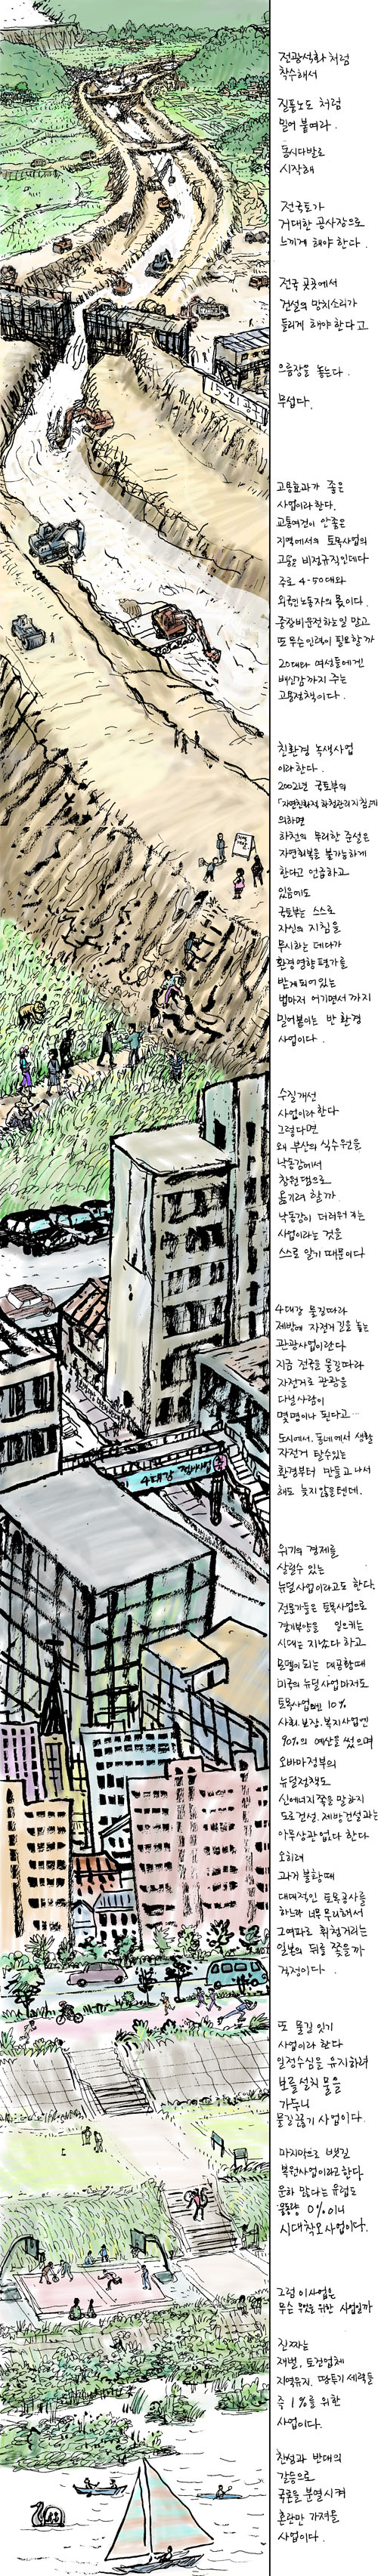 전광석화 처럼
착수해서
질풍노도 처럼
밀어 붙여라.
동시다발로
시작해
전국토가
거대한 공사장으로
느끼게 해야 한다.
전국 곳곳에서
건설의 망치소리가
들리게 해야 한다고
으름장을 놓는다.
무섭다.
고용효과가 좋은
사업이라 한다.
교통여건이 안좋은
지역에서의 토목사업의
고용은 비정규직인데다
주로 4-50대와
외국인노동자의 몫이다.
중장비운전하는일 말고
또 무슨 인력이 필요할까
20대와 여성들에겐
배신감까지 주는
고용정책이다.
친환경 녹색사업
이라 한다.
2002년 국토부의
「자연친화적 하천관리지침」에
의하면
하천의 무리한 준설은
자연회복을 불가능하게
한다고 언급하고
있음에도
국토부는 스스로
자신의 지침을
무시하는 데다가
환경영향평가를
받게 되어있는
법마저 어기면서 까지
밀어붙이는 반 환경
사업이다.
수질개선
사업이라 한다
그렇다면
왜 부산의 식수원을
낙동강에서
창원댐으로
옮기려 할까
낙동강이 더러워 지는
사업이라는 것을
스스로 알기 때문이다
4대강 물길따라
제방에 자전거 길을 놓는
관광사업이란다
지금 전국을 물길따라
자전거로 관광을
다닐 사람이
몇명이나 된다고…
도시에서, 동네에서 생활
자전거 탈수있는
환경부터 만들고 나서
해도 늦지 않을텐데.
4대강
위기의 경제를
살릴수 있는
뉴딜사업이라고도 한다.
전문가들은 토목사업으로
경기부양을 일으키는
시대는 지났다 하고
모델이 되는 대공황때
미국의 뉴딜사업마저도
토목사업엔 10%
사회.보장.복지사업엔
90%의 예산을 썼으며
오바마정부의
뉴딜정책도
신에너지쪽을 말하지
도로건설.제방건설과는
아무상관 없다 한다
오히려
과거 불황때
대대적인 토목공사를
하느라 너무 무리해서
그여파로 휘청거리는
일본의 뒤를 쫓을까
걱정이다.
또 물길 잇기
사업이라 한다
일정수심을 유지하려
보를설치 물을
가두니
물길끊기 사업이다.
마지막으로 뱃길
복원사업이라고한다.
운하 많다는 유럽도
물동량 0%이니
시대착오사업이다.
그럼 이사업은
무슨 무엇을 위한 사업일까
진짜는
재벌, 토건업체
지역유지, 땅투기 세력들
즉 1%를 위한
사업이다.
찬성과 반대의
갈등으로
국론을 분열시켜
혼란만 가져올
사업이다.